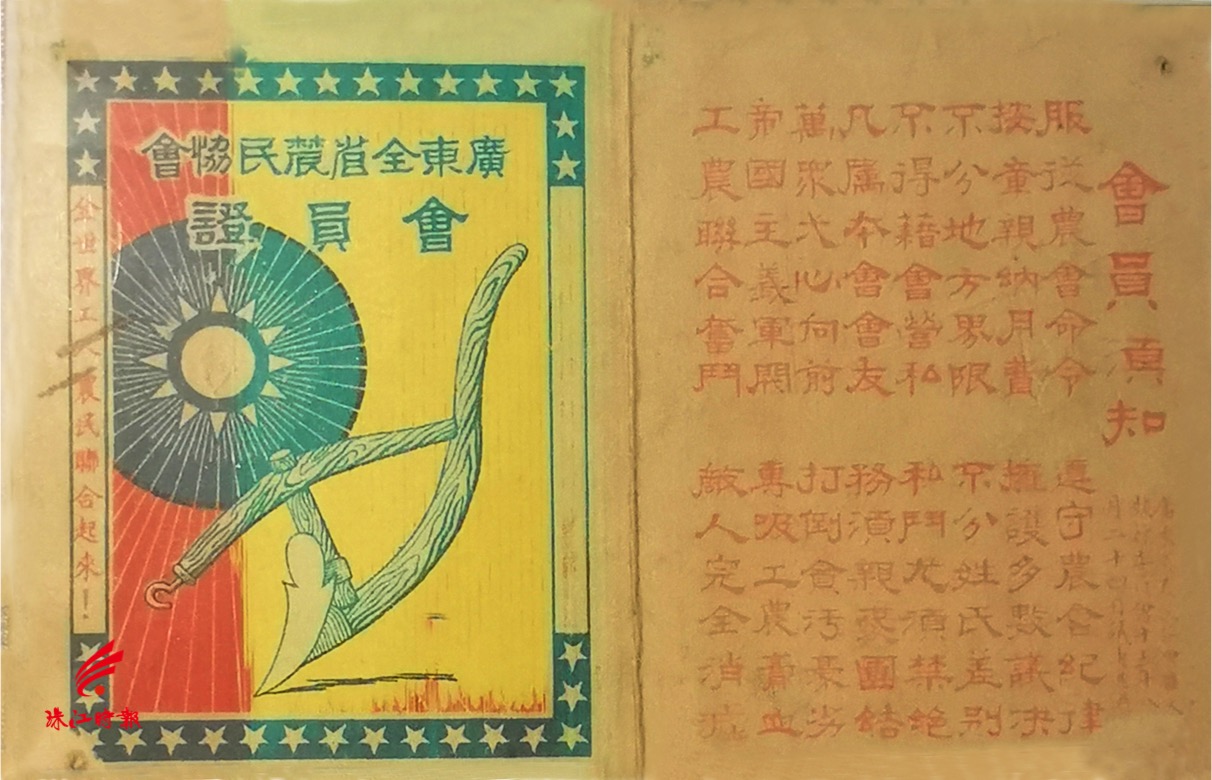 廣東全省農民恊會
會員證
全世界工人農民聯合起來！
會員須知
服從農會命令 遵守農會紀律
按章親納月費 擁護多數議決
不分地方界限 不分姓氏差別
不得藉會營私 私鬥尤須禁絕
凡屬本會會友 務須親愛團結
萬眾弌心向前 打倒貪污豪劣
帝國主義軍閥 專吸工農膏血
工農聯合奮鬥 敵人完全消滅
珠江時報